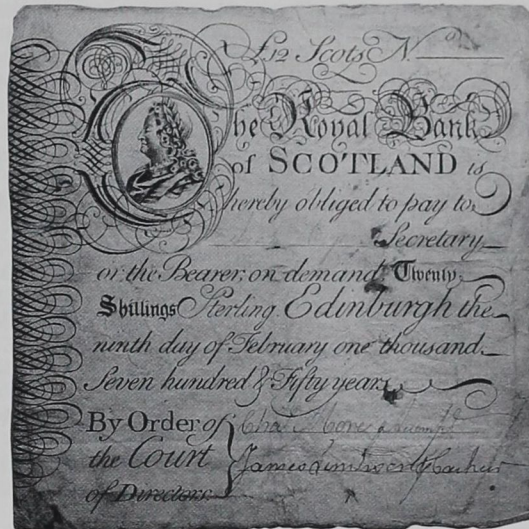 £12 Scots N.
The Royal Bank
of SCOTLAND is
hereby obliged to pay to
Secretary
or the Bearer, on demand Twenty
Shillings Sterling. Edinburgh the
ninth day of February one thousand
Seven hundred & Fifty years
By Order of
the Court James
of Directors